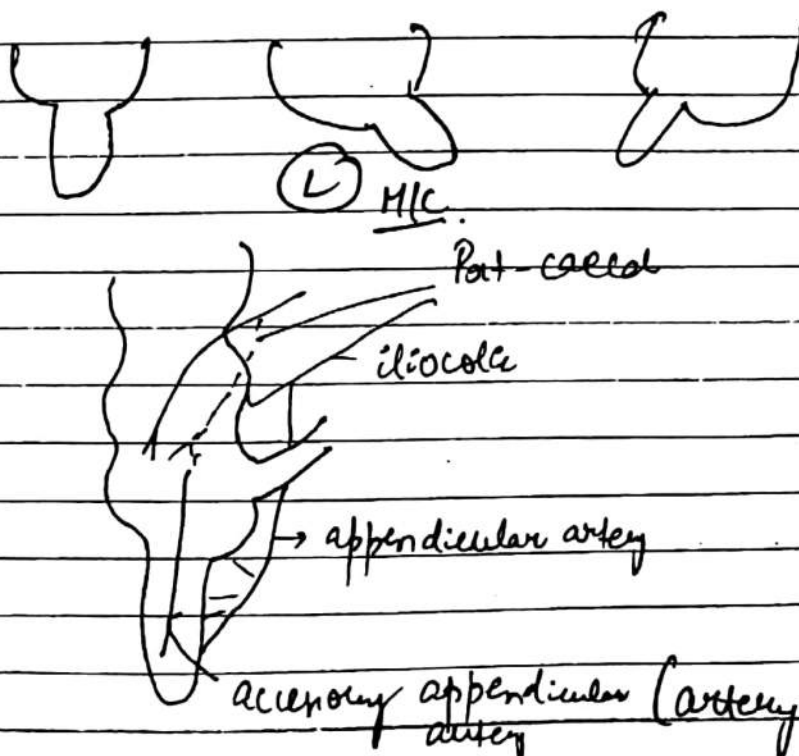 Ⓛ M/C.
Post-caecal
iliocolic
→ appendicular artery
accessory appendicular (artery
artery